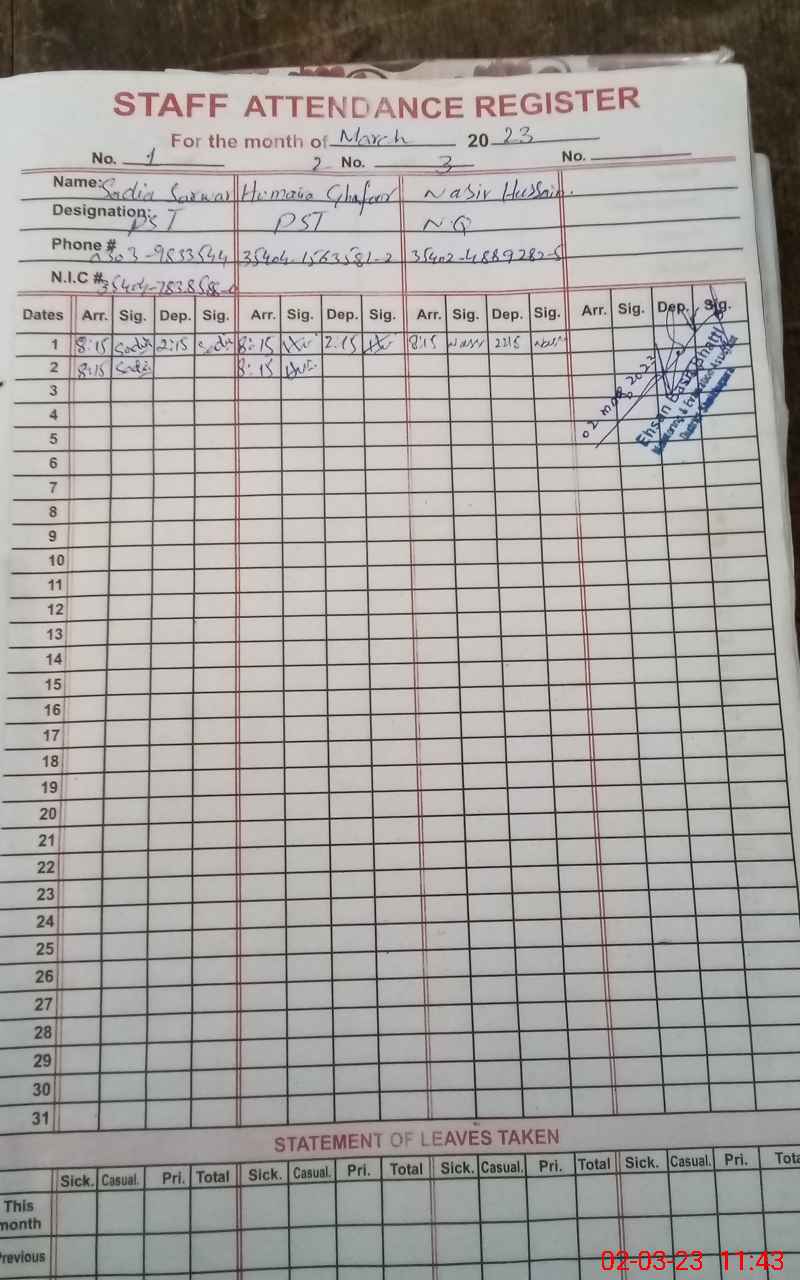 STAFF ATTENDANCE REGISTER
For the month of March 2023
No. 1 2 No. 3 No.
Name: Sadia Sarwar Humaira Ghafoor Nasir Hussain.
Designation: PST PST N.Q
Phone # 0303-9833544 35404-1563581-2 35402-4889282-5
N.I.C #
Dates Arr. Sig. Dep. Sig. Arr. Sig. Dep. Sig. Arr. Sig. Dep. Sig. Arr. Sig. Dep. Sig.
1 8:15 Sadia 2:15 Sadia 8:15 2:15 8:15 Nasir 2:15 Nasir
2 8:15 Sadia 8:15
02 MAR 2023
Ehsan Bashir Bhatti
3
4
5
6
7
8
9
10
11
12
13
14
15
16
17
18
19
20
21
22
23
24
25
26
27
28
29
30
31
STATEMENT OF LEAVES TAKEN
Sick. Casual. Pri. Total Sick. Casual. Pri. Total Sick. Casual. Pri. Total Sick. Casual. Pri. Tota
This
month
Previous
02-03-23 11:43